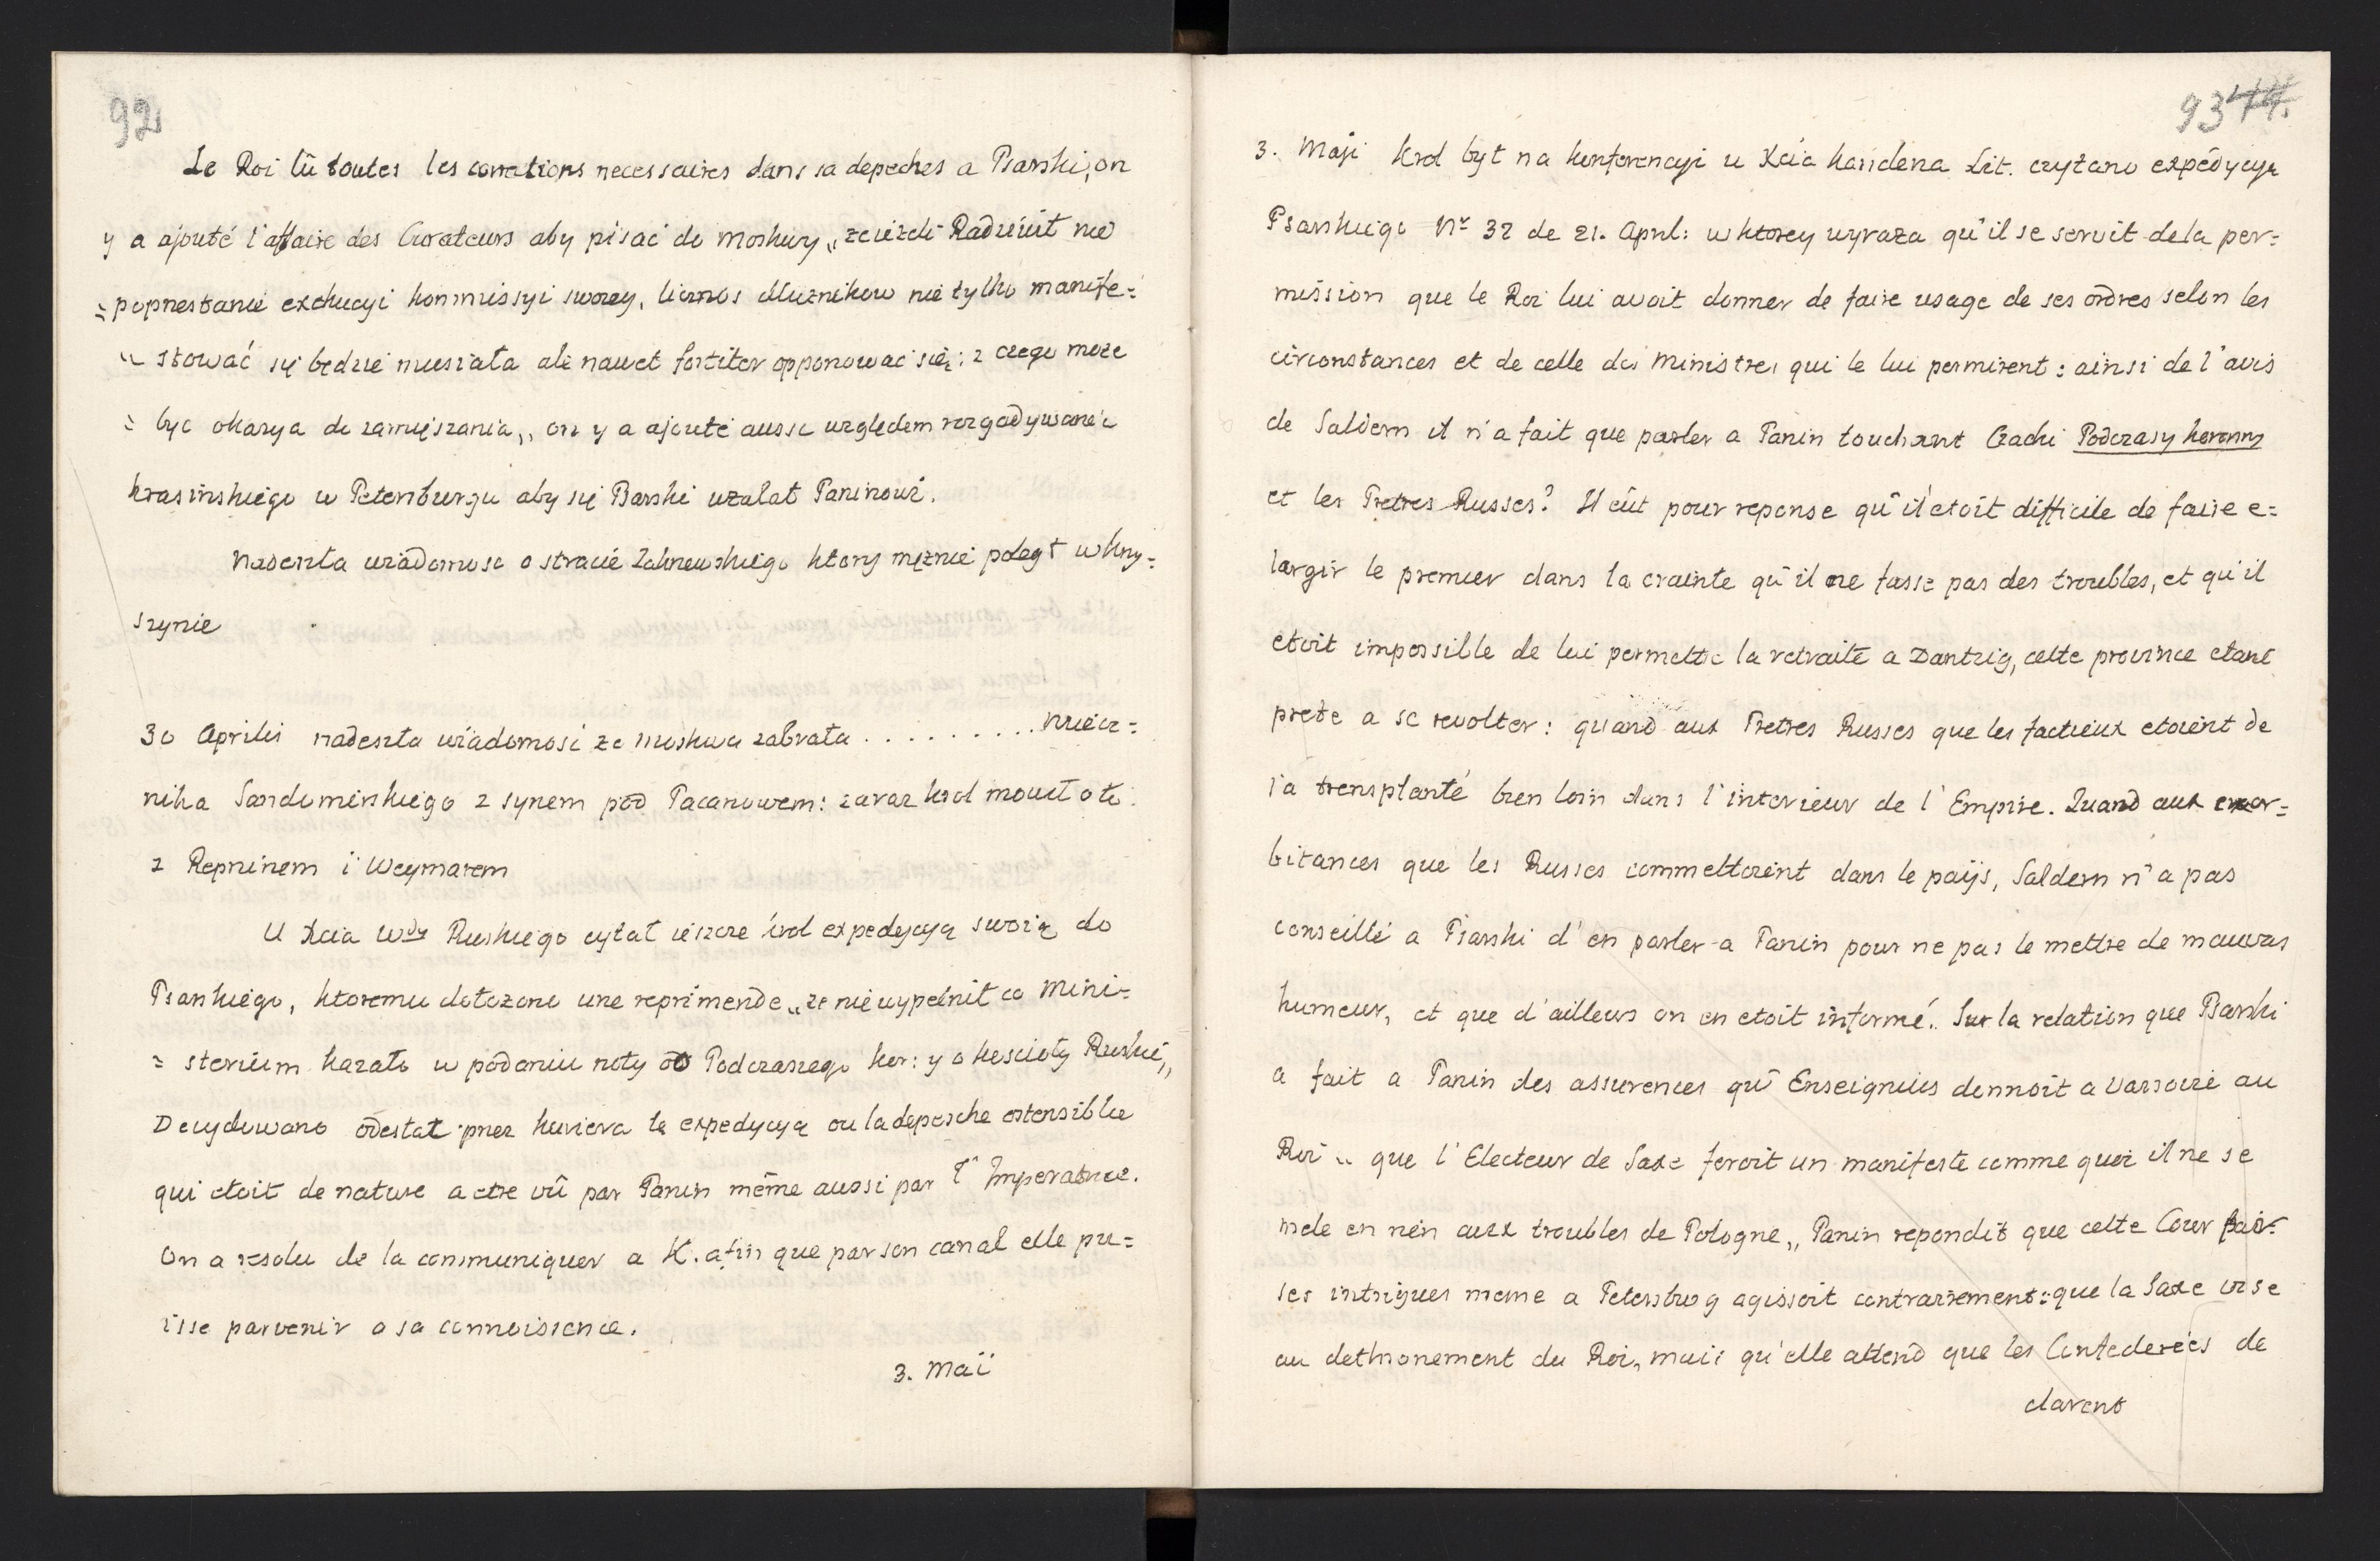 92
Le Roi lû toutes les corrections necessaires dans sa depeches a Psarski, on
y a ajouté l'affaire des Curateurs aby pisać do Moskwy „ze ieżeli Radziwił nie
= poprzestanie exekucyi kommissyi swoiey, licznos dłużnikow nie tylko manife=
„ stować się będzie musiała ale nawet fortiter opponować się; z czego może
= byc okazya do zamięszania„, on y a ajouté aussi względem rozgadywania
Krasinskiego w Petersburgu aby się Psarski użalał Paninowi.
Nadeszla wiadomosc o stracie Zakrzewskiego ktory mężnie poległ w Kry=
szynie
30 Aprilis nadeszła wiadomosi ze moskwa zabrała . . . . . . . . . . miecz=
nika Sandomirskiego z synem pod Pacanowem: zaraz krol mowił o to
z Repninem i Weymarem
U Xcia Wdy Ruskiego cytał ieszcze krol expedycyą swoią do
Psarskiego, ktoremu dołożono une reprimende „ze nie wypełnił co Mini=
= sterium kazało w podaniu noty od Podczaszego kor: y o koscioły Ruskie„
Decydowano odesłać przez kuriera tę expedycyą ou la depesche ostensible
qui etoit de nature a etre vû par Panin même aussi par l'Imperatrice.
On a resolu de la communiquer a K. afin que par son canal elle pu=
isse parvenir a sa connoissence.
3. Maï
93 44.
3. Maji Krol był na konferencyi u Xcia kanclerza Lit. czytano expedycyą
Psarskiego Nr 32 de 21. April: w ktorey wyraza qu'il se servit de la per=
mission que le Roi lui avoit donner de faire usage de ses ordres selon les
circonstances et de celle des Ministres qui le lui permirent: ainsi de l'avis
de Saldern il n'a fait que parler a Panin touchant Czacki Podczaszy koronny
et les Pretres Russes? Il eût pour reponse qu'il etoit difficile de faire e=
largir le premier dans la crainte qu'il ne fasse pas des troubles, et qu'il
etoit impossible de lui permettre la retraite a Dantzig, cette province etant
prete a se revolter: quand aux Pretres Russes que les factieux etoient de
ja transplanté bien loin dans l'interieur de l'Empire. Quand aux exor=
bitances que les Russes commettoient dans le païs, Saldern n'a pas
conseillé a Psarski d'en parler a Panin pour ne pas le mettre de mauvais
humeur, et que d'ailleurs on en etoit informé. Sur la relation que Psarski
a fait a Panin des assurences qu' Enseignius donnoit a Varsovie au
Roi „ que l'Electeur de Saxe feroit un manifeste comme quoi il ne se
mele en rien aux troubles de Pologne„ Panin repondit que cette Cour par
ses intrigues meme a Petersburg agissoit contrairement: que la Saxe vise
au dethronement du Roi, mais qu'elle attend que les Confederées de
clarent